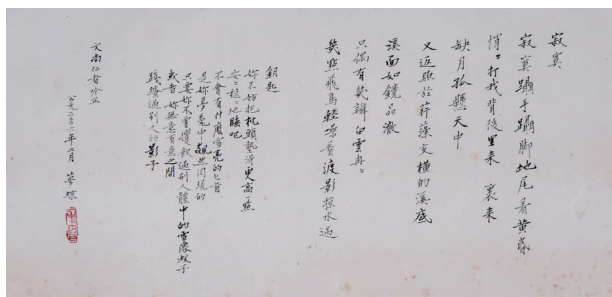 寂寞
寂寞躡手躡腳地尾着黃昏
悄悄打我背後里來 裹來
缺月孤懸天中
又返照於荇藻交橫的溪底
溪面如鏡晶澈
只偶有幾瓣白雲冉冉
幾點飛鳥輕噪着渡影掠水過
鑰匙
妳不妨把枕頭墊得更高點
安安穩穩地睡吧
不會有什麼雪亮的匕首
是妳夢寐中 然閃現的
只要妳不曾慣飲過別人體中的 像蚊子
或者 妳無意有意之間
踐踏過別人的影子
文 仁者 正
公元二〇〇六年二月 夢蝶